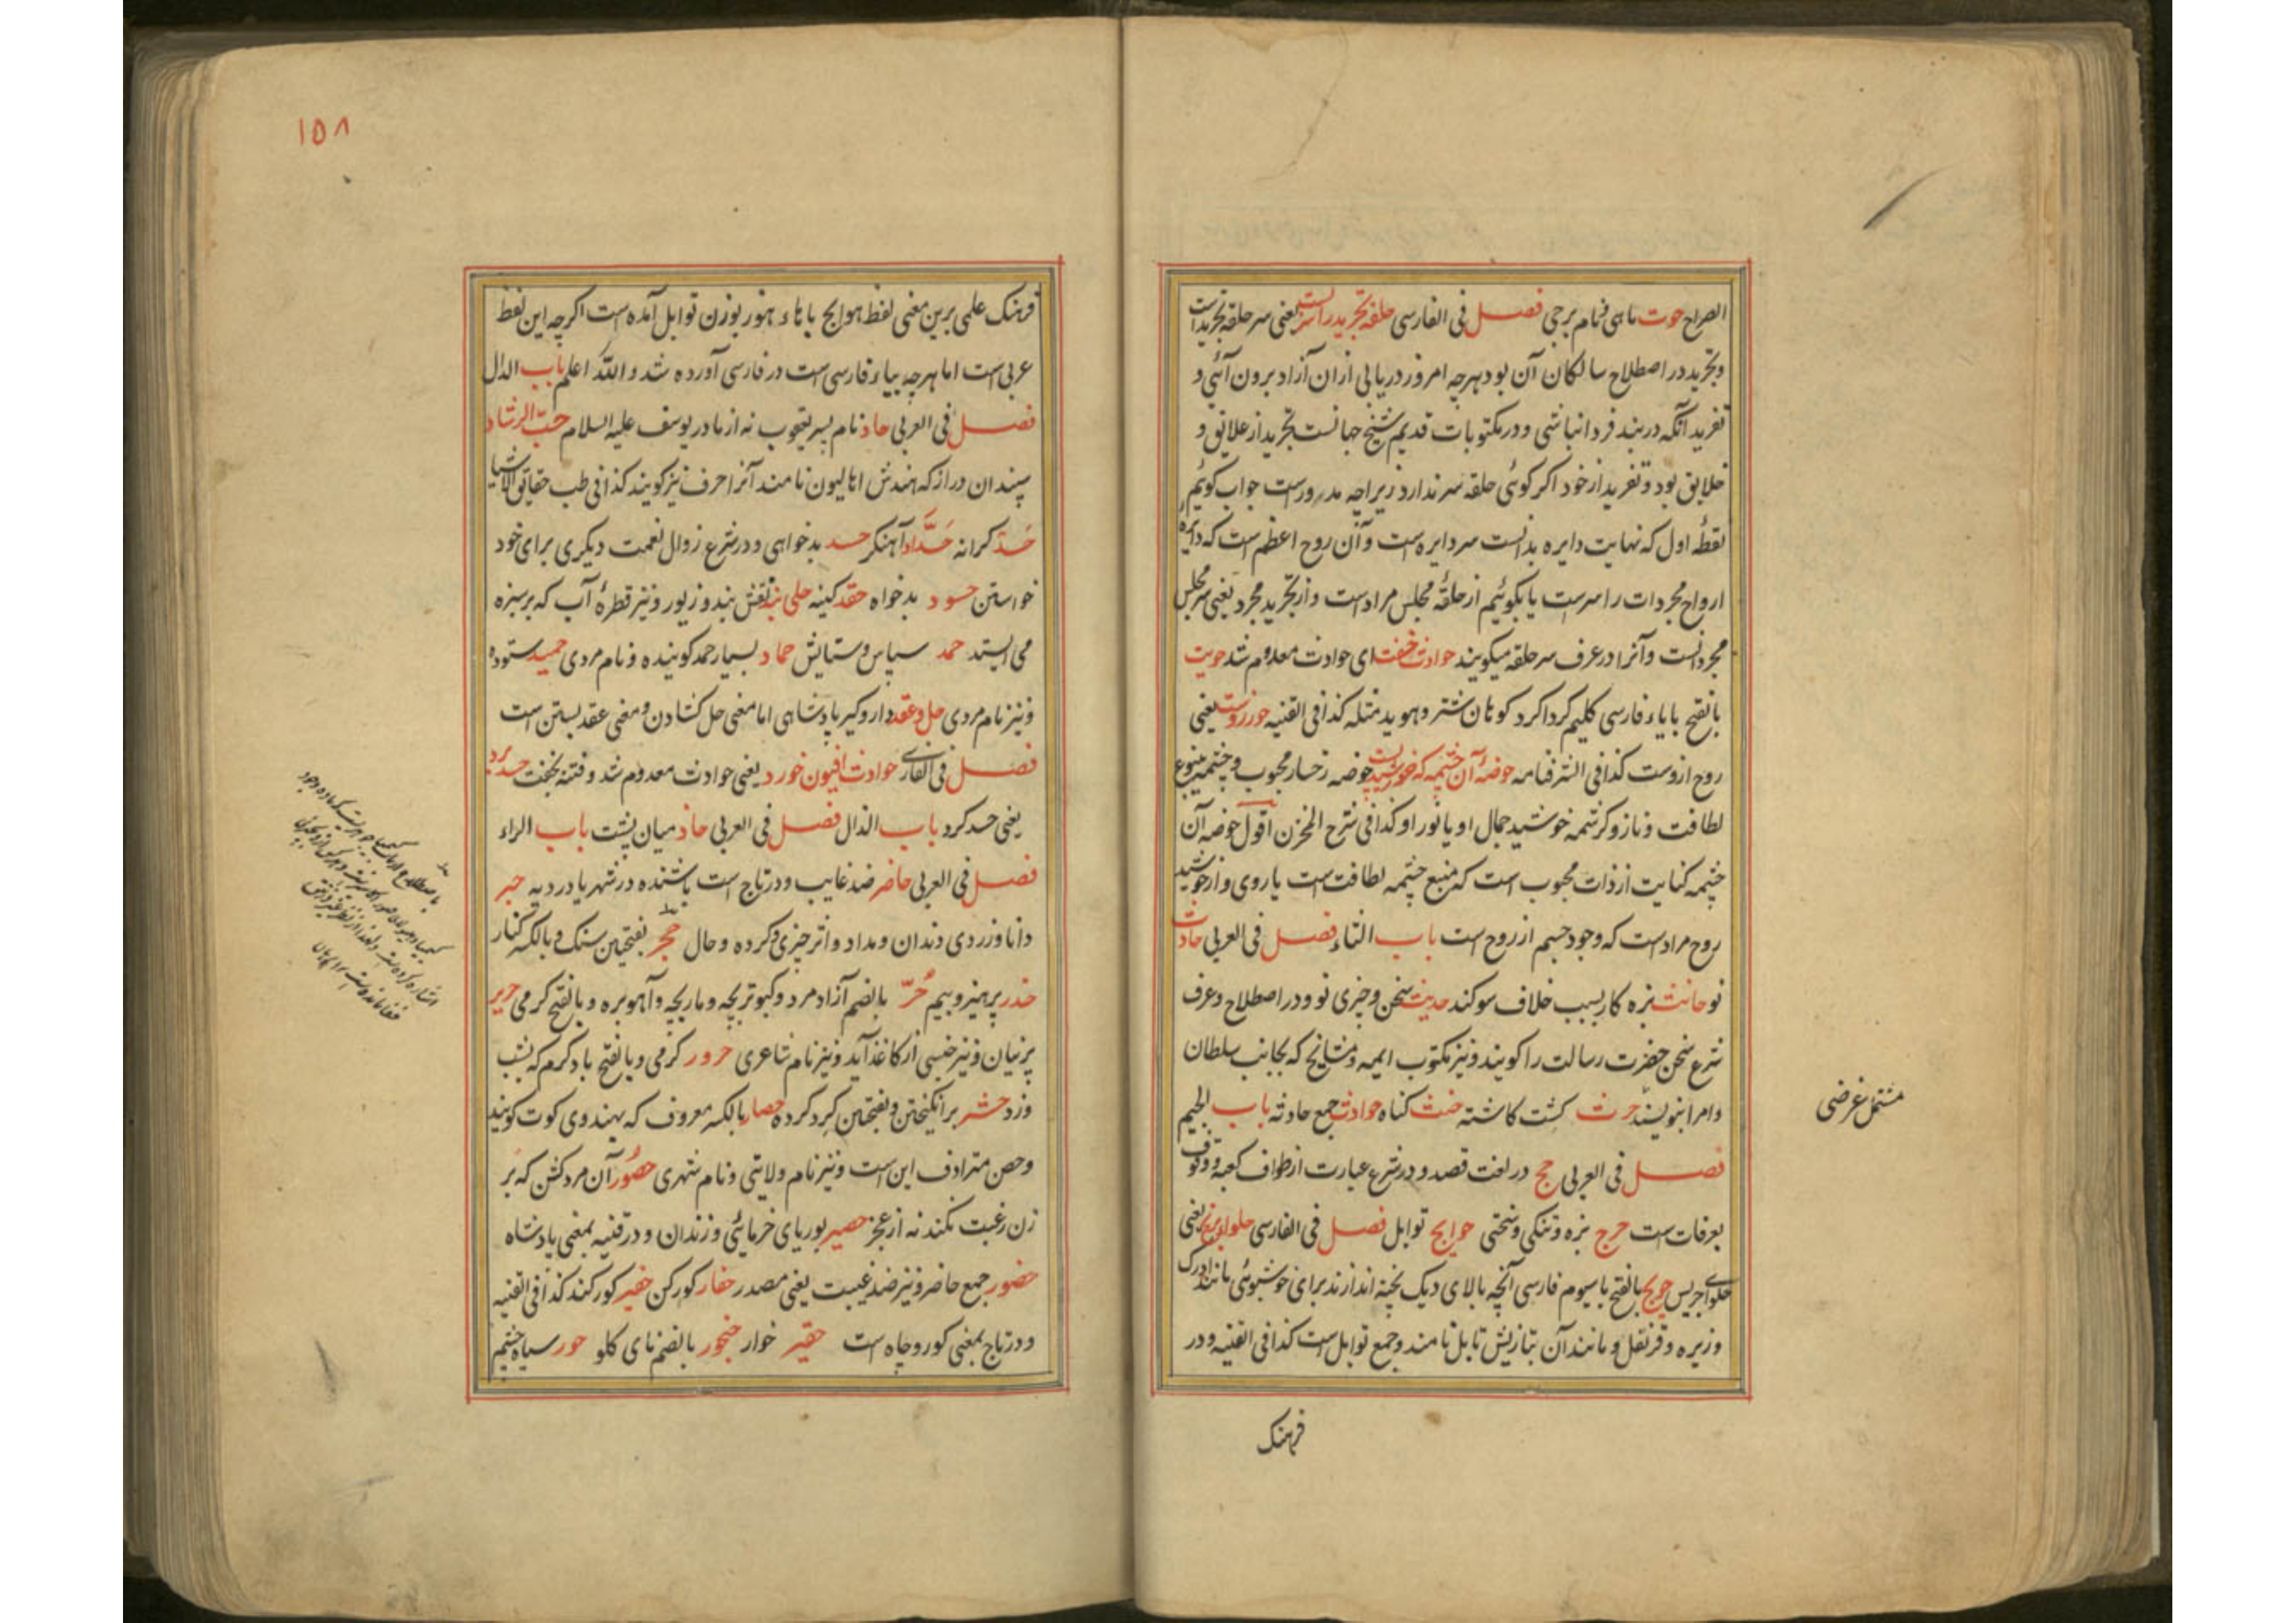 الصراح حوت ماهی و نام برجی فصل فی الفارسی حلقه تجرید را سرست یعنی سر حلقه تجریدست
و تجرید در اصطلاح سالکان آن بود هرچه امروز دریابی ازان آزاد برون آئی و
تفرید آنکه دربند فردا نباشی و در مکتوبات قدیم شیخ جهانست تجرید از علایق و
خلایق بود و تفرید از خود اکر کوئی حلقه سر ندارد زیراچه مدورست جواب کوئیم
نقطهٔ اول که نهایت دایره بدانست سر دایره است و آن روح اعظم است که دایرهٔ
ارواح مجردات را سرست یا بکوئیم از حلقهٔ مجلس مراد است و از تجرید مجرد یعنی سر مجلس
مجردانست و آنرا در عرف سر حلقه میکویند حوادث خفت ای حوادث معدوم شد حویت
بالفتح با یاء فارسی کلیم کرداکرد کوهان شتر و هوید مثله کذا فی القنیه حور زوست یعنی
روح ازوست کذا فی الشرفنامه حوضهٔ آن چشمه که خورشیدست حوضه رخسار محبوب و چشمه ینبوع
لطافت و ناز و کرشمه خورشید جمال او یا نور او کذا فی شرح المخزن اقول حوضه آن
چشمه کنایت از ذات محبوب است که منبع چشمه لطافت است یا روی و از خورشید
روح مراد است که وجود جسم از روح است باب الثاء فصل فی العربی حادث
نو حانث بزه کار بسبب خلاف سوکند حدیث سخن و چیزی نو و در اصطلاح و عرف
شرع سخن حضرت رسالت را کویند و نیز مکتوب ایمه و مشایخ که بجانب سلطان
و امرا بنویسند حرث کشت کاشته حنث کناه حوادث جمع حادثه باب الجیم
فصل فی العربی حج در لغت قصد و در شرع عبارت از طواف کعبه و وقوف
بعرفات ست حرج بزه و تنکی و سختی حوایج توابل فصل فی الفارسی حلوای برنج یعنی
حلوای جریس حویج بالفتح با سیوم فارسی آنچه بالای دیک پخته اندازند برای خوشبوئی مانند ادرک
و زیره و قرنفل و مانند آن بتازیش تابل نامند و جمع توابل ست کذا فی القنیه و در
فرهنک
مشتمل غرضی
۱۵۸
فرهنک علمی برین معنی لفظ هوایج با هاء هوز بوزن توابل آمده است اکرچه این لفظ
عربی است اما هرچه بیاء فارسی است در فارسی آورده شد و الله اعلم باب الدال
فصل فی العربی حاد نام پسر یعقوب نه از مادر یوسف علیه السلام حب الرشاد
سپندان دراز که هندش اهالیون نامند آنرا حرف نیز کویند کذا فی طب حقایق الاشیا
حد کرانه حدّاد آهنکر حسد بدخواهی و در شرع زوال نعمت دیکری برای خود
خواستن حسود بدخواه حقد کینه حلی بند نقش بند و زیور و نیز قطرهٔ آب که بر سبزه
می ایستد حمد سپاس و ستایش حماد بسیار حمد کوینده و نام مردی حمید ستوده
و نیز نام مردی حل و عقد دار و کیر پادشاهی اما معنی حل کشادن و معنی عقد بستن است
فصل فی الفارسی حوادث افیون خورد یعنی حوادث معدوم شد و فتنه بخفت حسد برد
یعنی حسد کرد باب الذال فصل فی العربی حاذ میان پشت باب الراء
فصل فی العربی حاضر ضد غایب و در تاج است باشنده در شهر یا در دیه حبر
دانا و زردی دندان و مداد و اثر چیزی و کرده و حال حجر بفتحین سنک و بالکسر کنار
حذر پرهیز و بیم حُرّ بالضم آزاد مرد و کبوتر بچه و مار بچه و آهو بره و بالفتح کرمی حریر
پرنیان و نیز جنسی از کاغذ آید و نیز نام شاعری حرور کرمی و بالفتح باد کرم که بشب
وزد حشر برانکیختن و بفتحین کرد کرده حصار بالکسر معروف که بهندوی کوت کویند
و حصن مترادف این است و نیز نام ولایتی و نام شهری حصور آن مردکش که بر
زن رغبت نکند نه از عجز حصیر بوریای خرمائی و زندان و در قنیه بمعنی پادشاه
حضور جمع حاضر و نیز ضد غیبت یعنی مصدر حفار کورکن حفیر کور کند کذا فی القنیه
و در تاج بمعنی کور و چاه است حقیر خوار حنجور بالضم نای کلو حور سیاه چشم